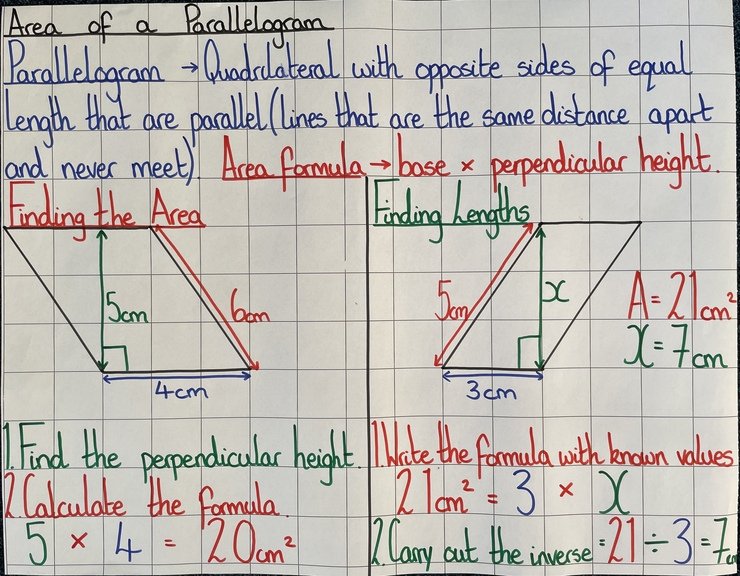 Area of a Parallelogram
Parallelogram → Quadrilateral with opposite sides of equal
length that are parallel (lines that are the same distance apart
and never meet). Area formula → base × perpendicular height.
Finding the Area
5cm
6cm
4cm
1. Find the perpendicular height.
2. Calculate the formula.
5 × 4 = 20cm²
Finding Lengths
5cm
x
A = 21cm²
x = 7cm
3cm
1. Write the formula with known values
21cm² = 3 × x
2. Carry out the inverse = 21 ÷ 3 = 7cm